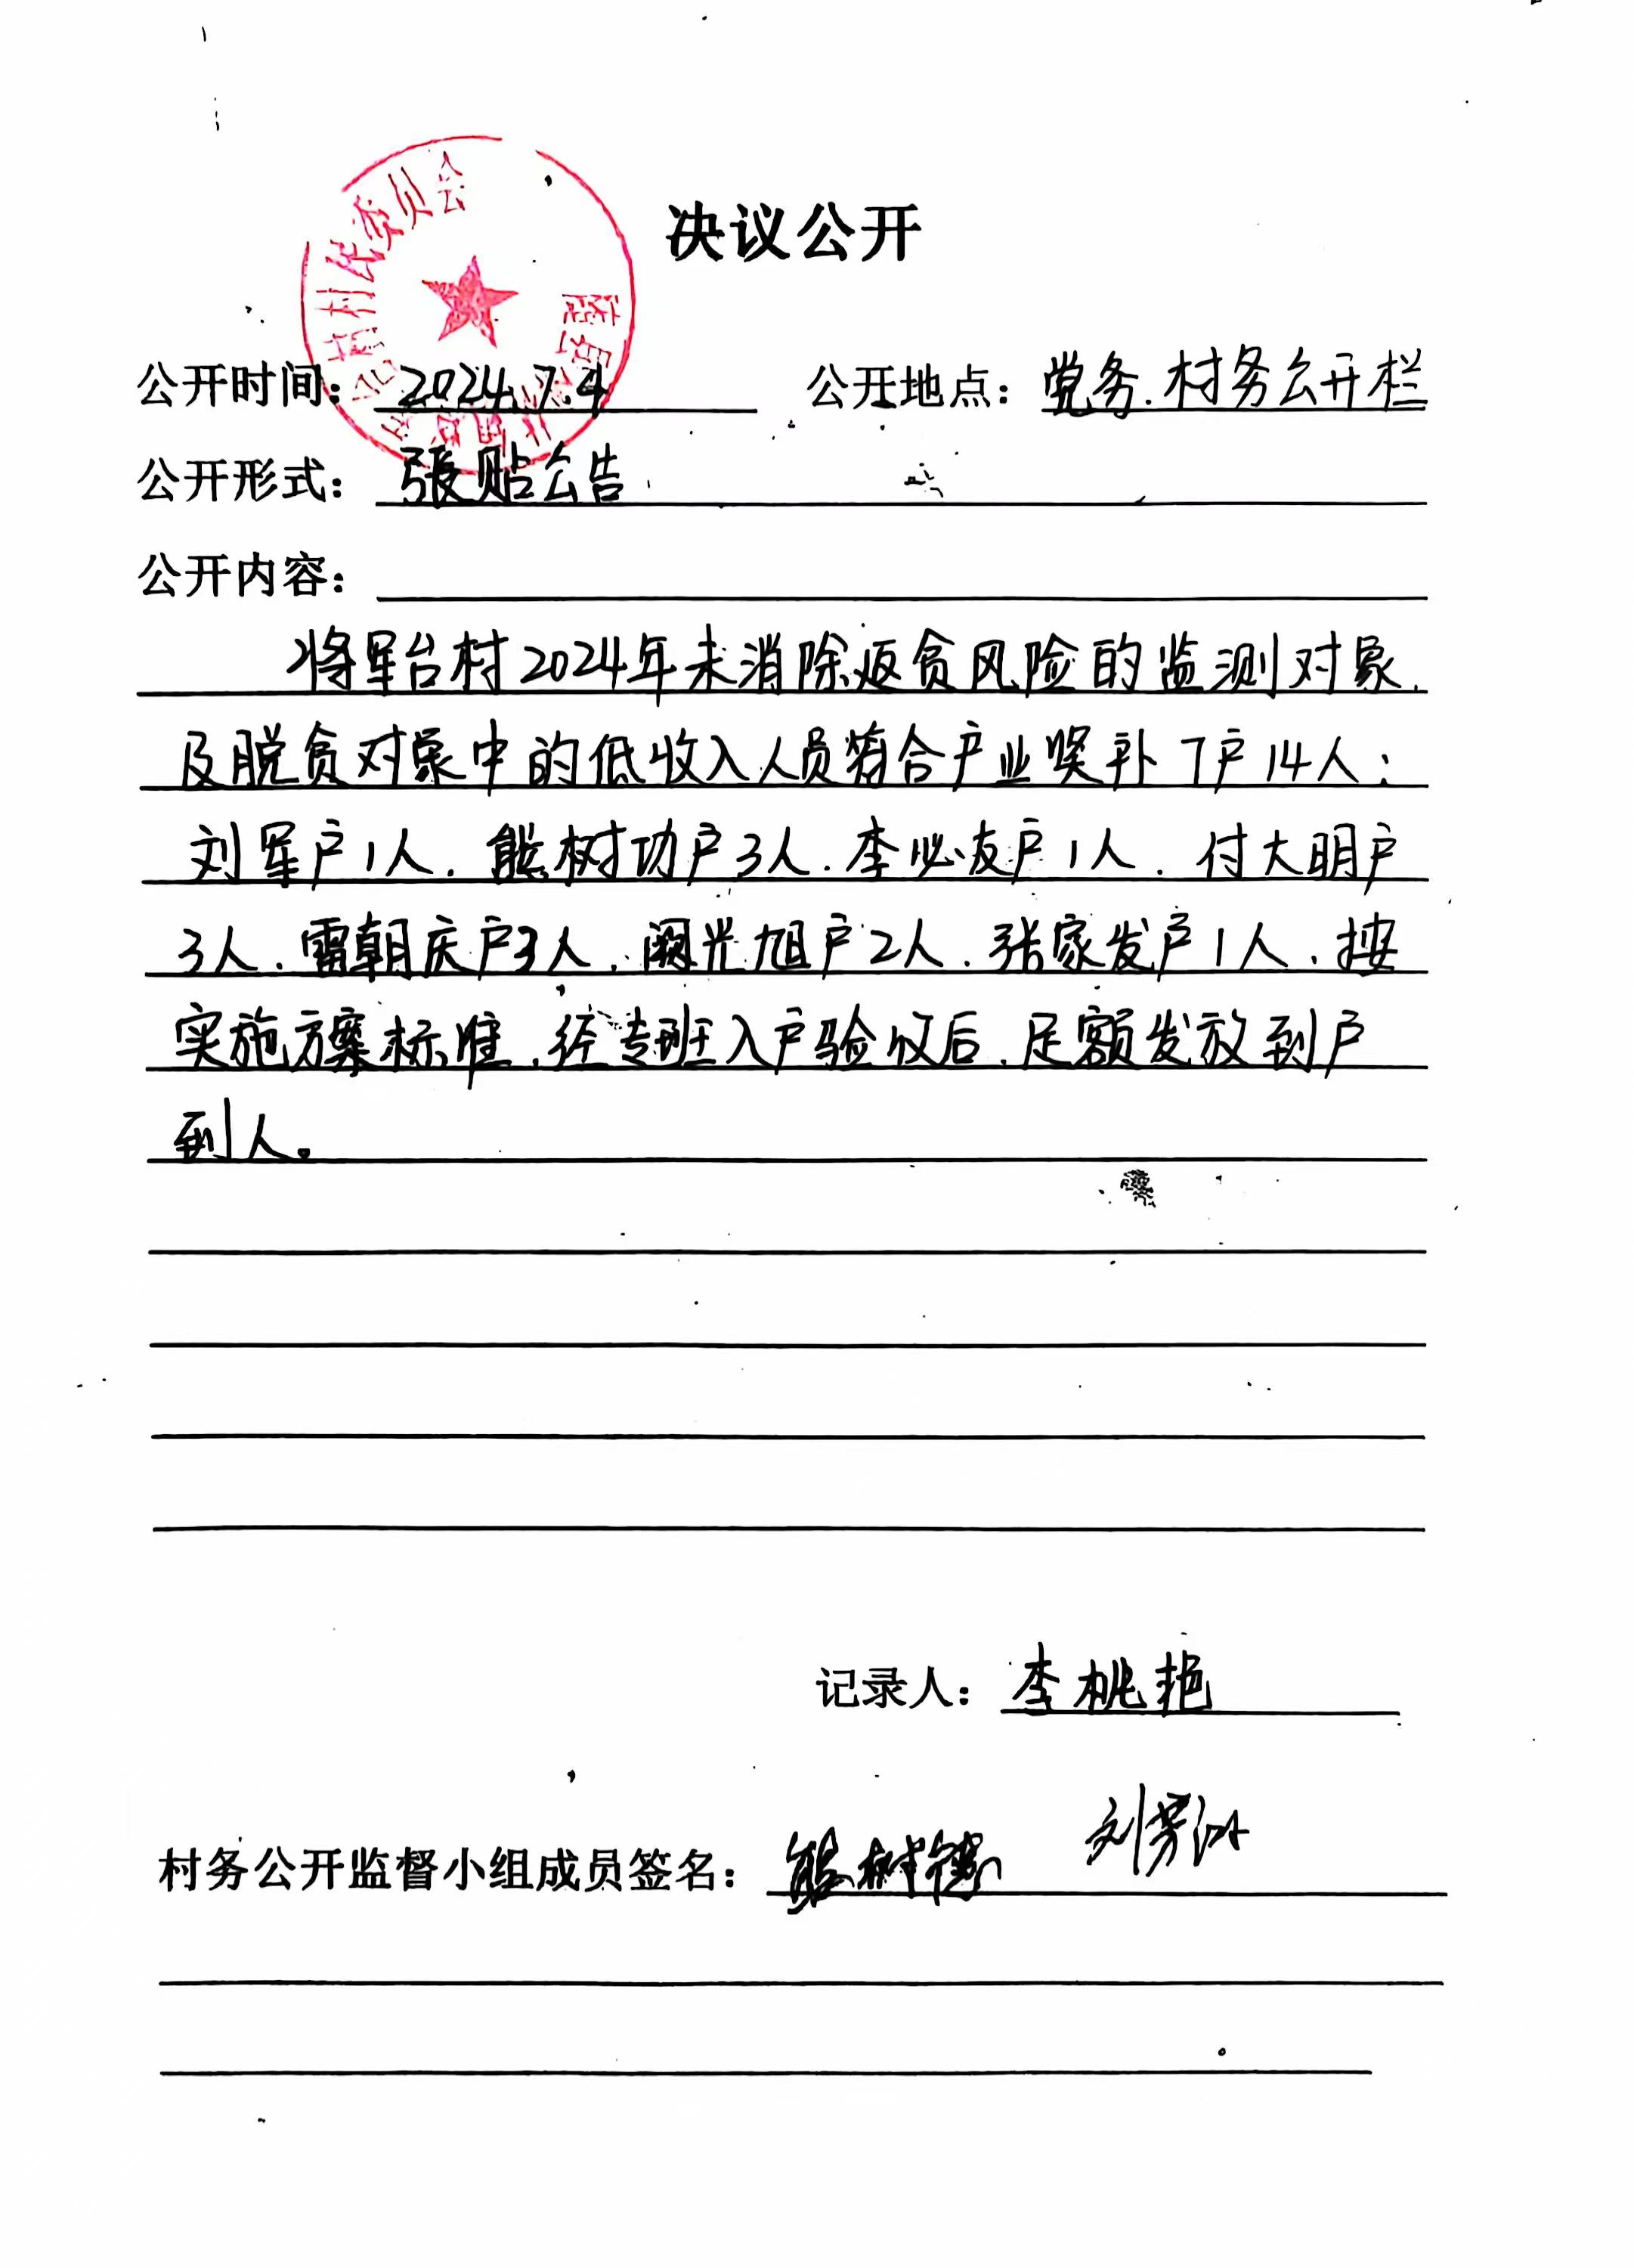 决议公开
公开时间：2024.7.4 公开地点：党务.村务公开栏
公开形式：張贴公告
公开内容：
将军台村2024年未消除返贫风险的监测对象.
及脱贫对象中的低收入人员符合产业奖补7户14人：
刘军户1人.熊树功户3人.李必友户1人.付大明户
3人.雷朝庆户3人.阚光旭户2人.张家发户1人.按
实施方案标准.经专班入户验收后.足额发放到户
到人。
记录人：李桃艳
村务公开监督小组成员签名：熊树